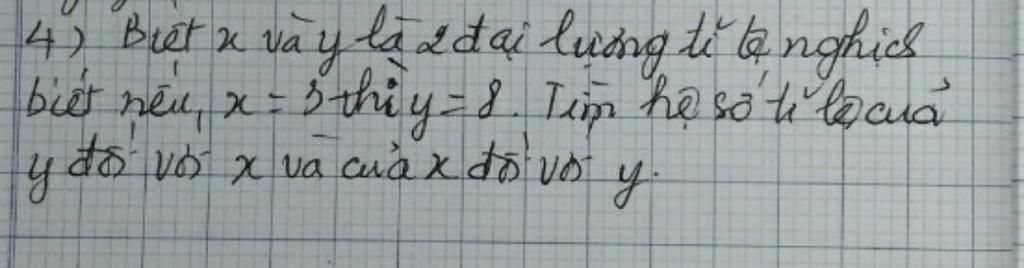 4) Biết x và y là 2 đại lượng tỉ lệ nghịch
biết nếu, x = 3 thì y = 8. Tìm hệ số tỉ lệ của
y đối với x và của x đối với y.